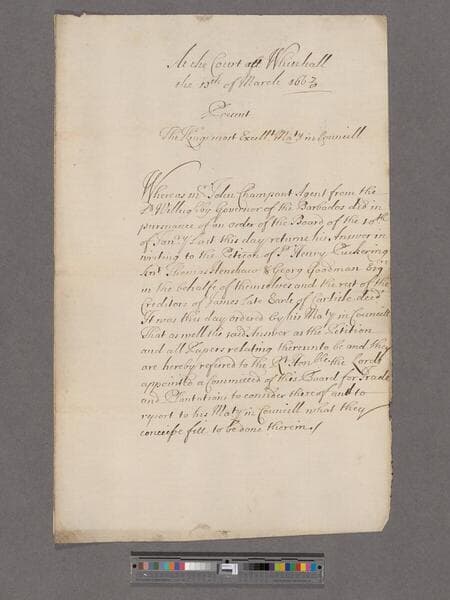 At the Court att Whitehall
the 13th of March 166
Present
The Kings most Excellt Maty in Councill
Whereas mr John Champant Agent from the
Ld Willughby Governor of the Barbados did in
pursuance of an order of the Board of the
of Janry Last this day returne his Answer in
writing to the Peticon of Sr Henry Puckering
Knt Thomas Henshaw & Georg Goodman Esqrs
in the behalfe of themselves and the rest of the
Creditors of James Late Earle of Carlile decd
It was this day ordered by his Maty in Councill
That as well the said Answer as the Petition
and all Papers relating thereunto be and they
are hereby refered to the Rt Honble the Lords
appointed a Committee of this Board for Trade
and Plantations to consider thereof and to
report to his Maty in Councill what they
conceive fitt to be done therein